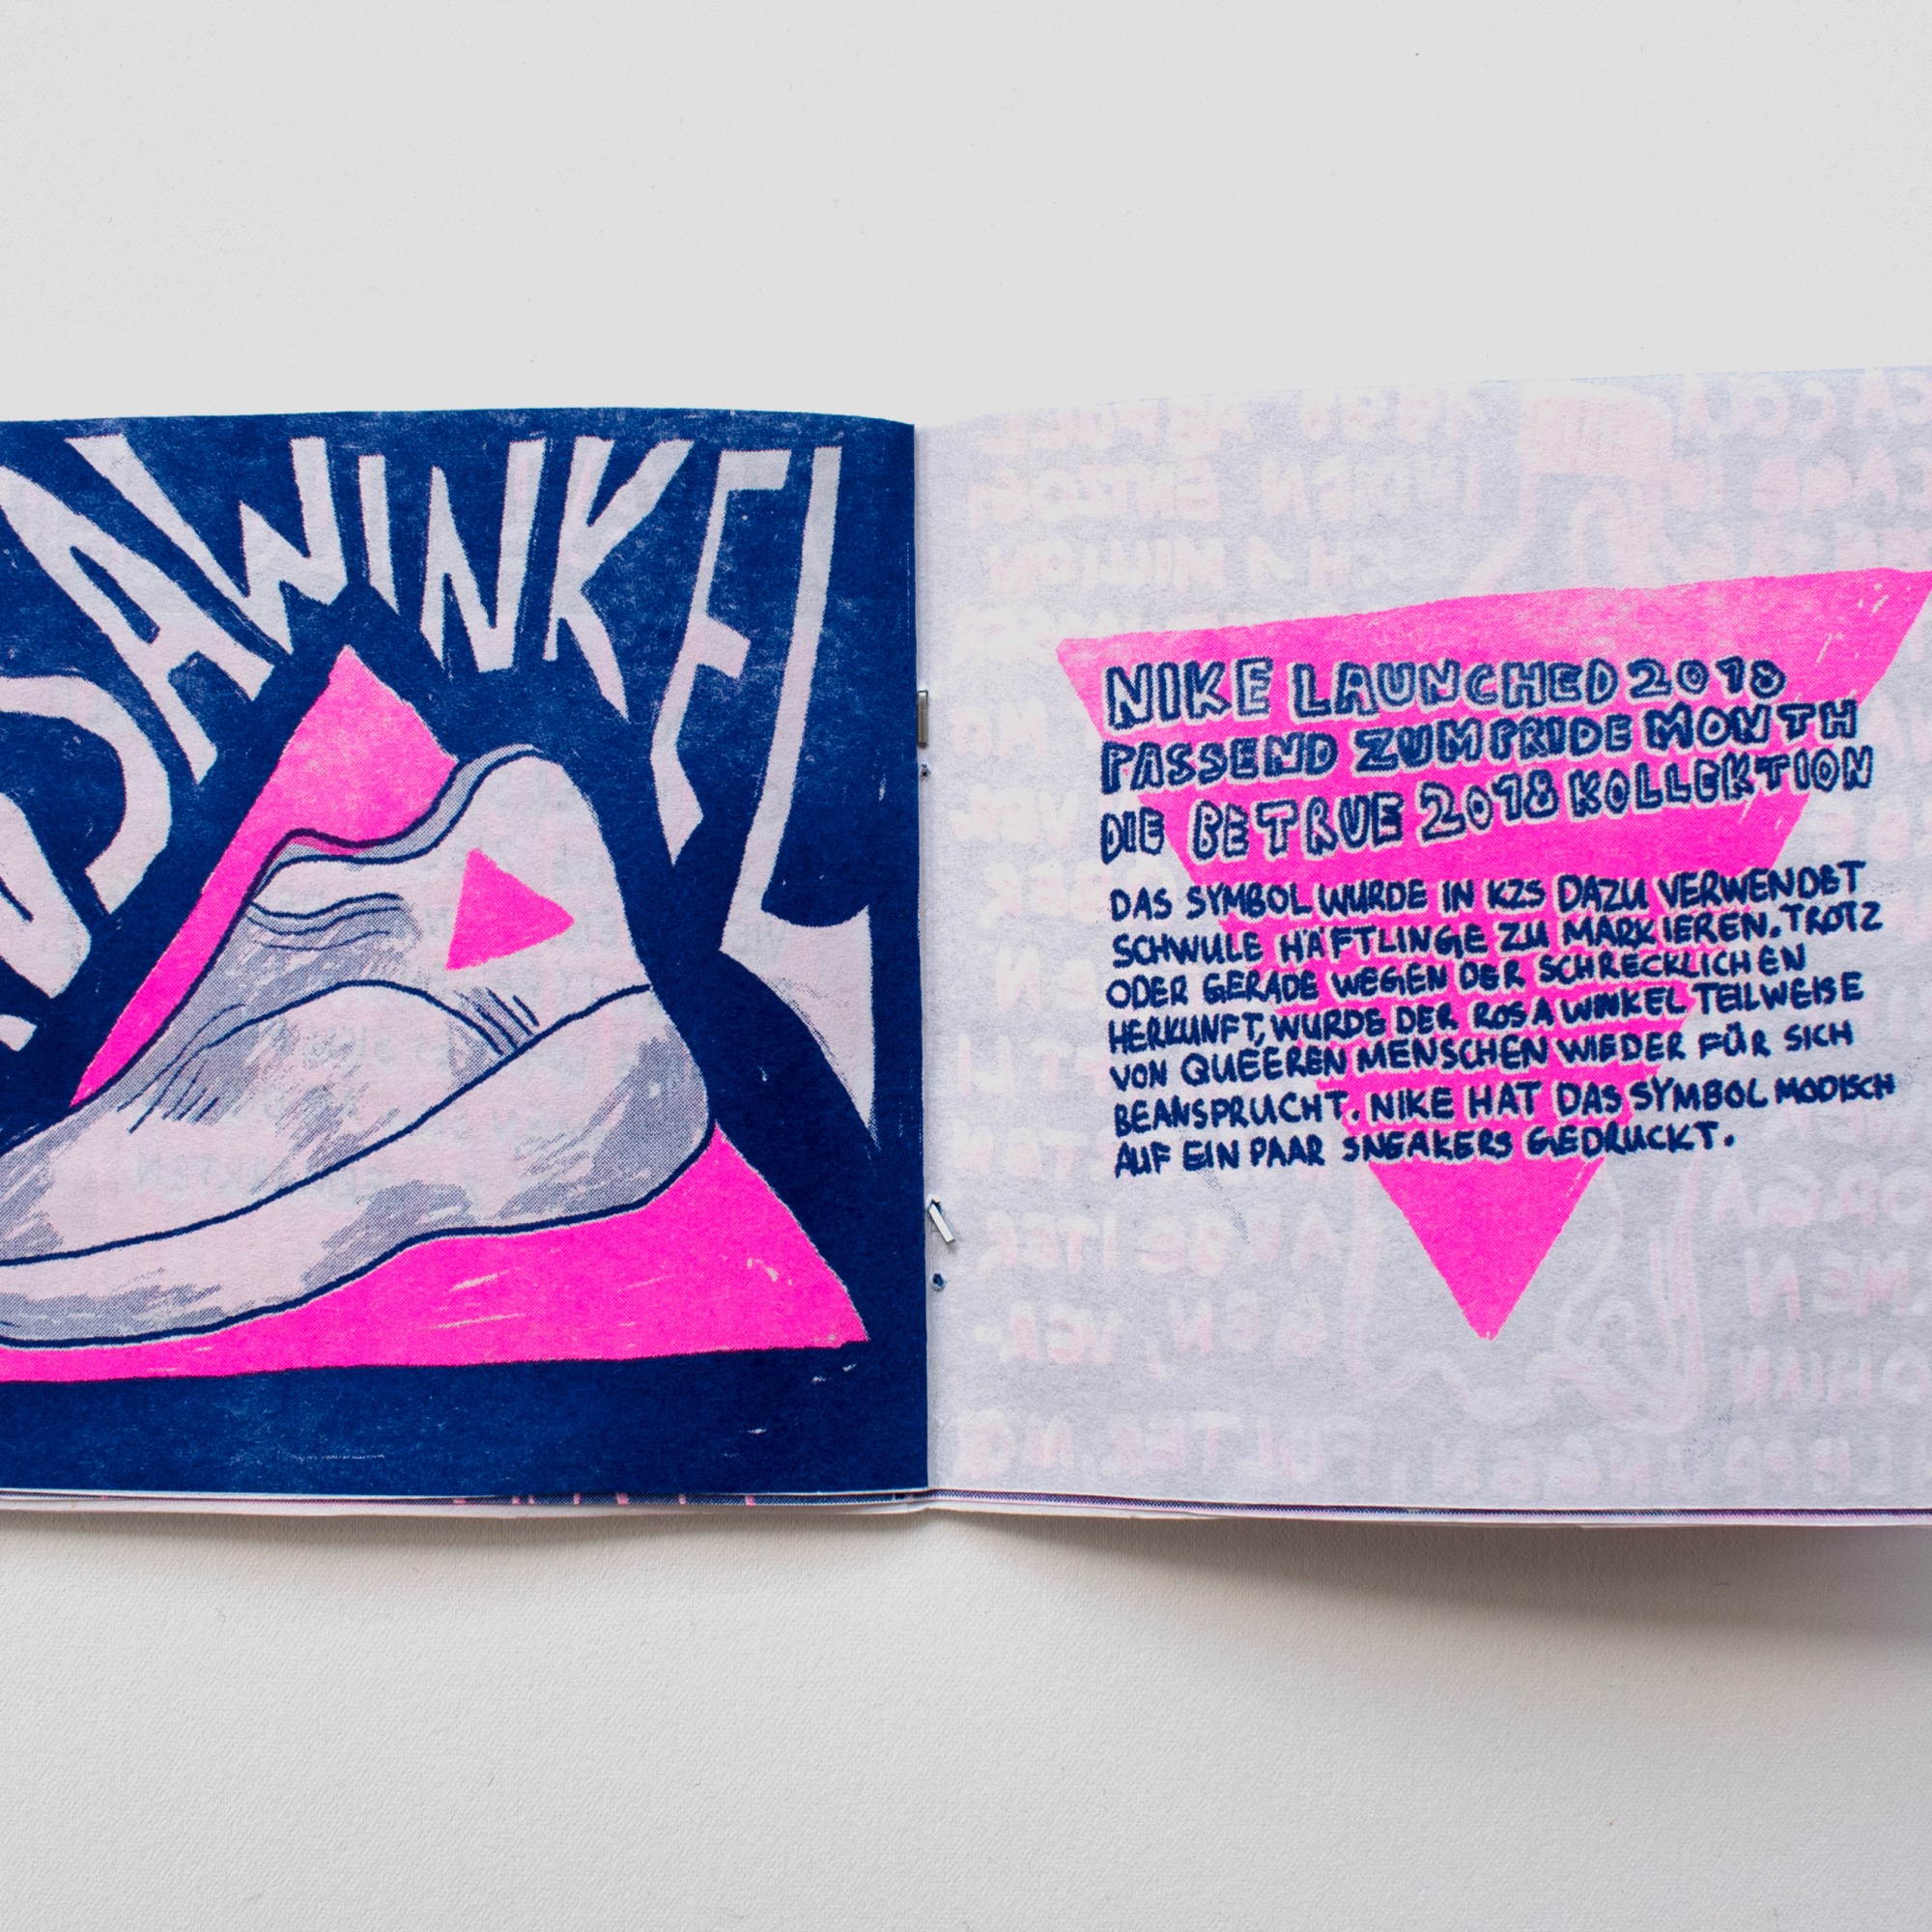 SAWINKEL
NIKE LAUNCHED 2018
PASSEND ZUM PRIDE MONTH
DIE BETRUE 2018 KOLLEKTION
DAS SYMBOL WURDE IN KZS DAZU VERWENDET
SCHWULE HÄFTLINGE ZU MARKIEREN. TROTZ
ODER GERADE WEGEN DER SCHRECKLICHEN
HERKUNFT, WURDE DER ROSA WINKEL TEILWEISE
VON QUEEREN MENSCHEN WIEDER FÜR SICH
BEANSPRUCHT. NIKE HAT DAS SYMBOL MODISCH
AUF EIN PAAR SNEAKERS GEDRUCKT.